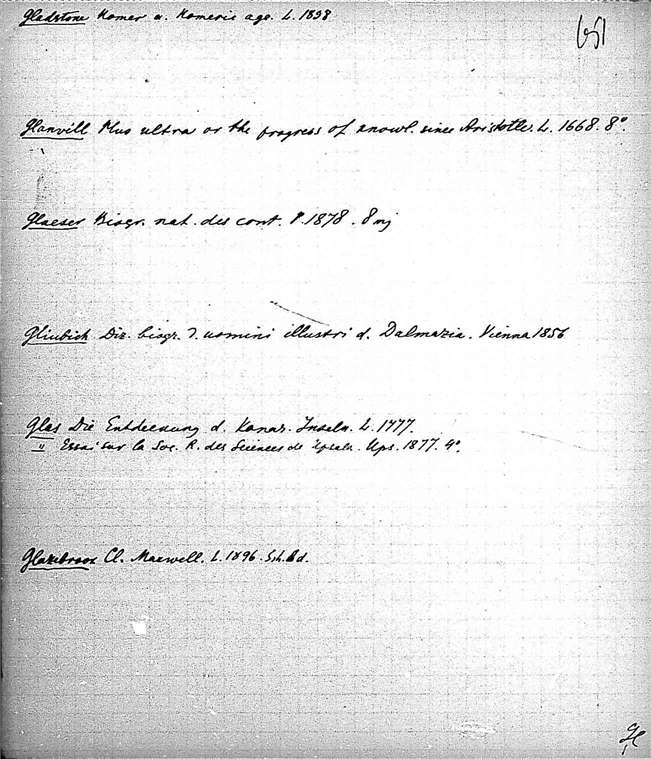 Gladstone Homer a. Homeric age. L. 1858
651
Glanvill Plus ultra or the progress of knowl. since Aristotle. L. 1668. 8°.
Glaeser Biogr. nat. des cont. P. 1878. 8mj
Gliubich Diz. biogr. d. uomini illustri d. Dalmazia. Vienna 1856
Glas Die Entdeckung d. Kanar. Inseln. L. 1777.
" Essai sur la Soc. R. des Sciences de Upsala. Ups. 1877. 4°.
Glazebrook Cl. Maxwell. L. 1896.
Gl